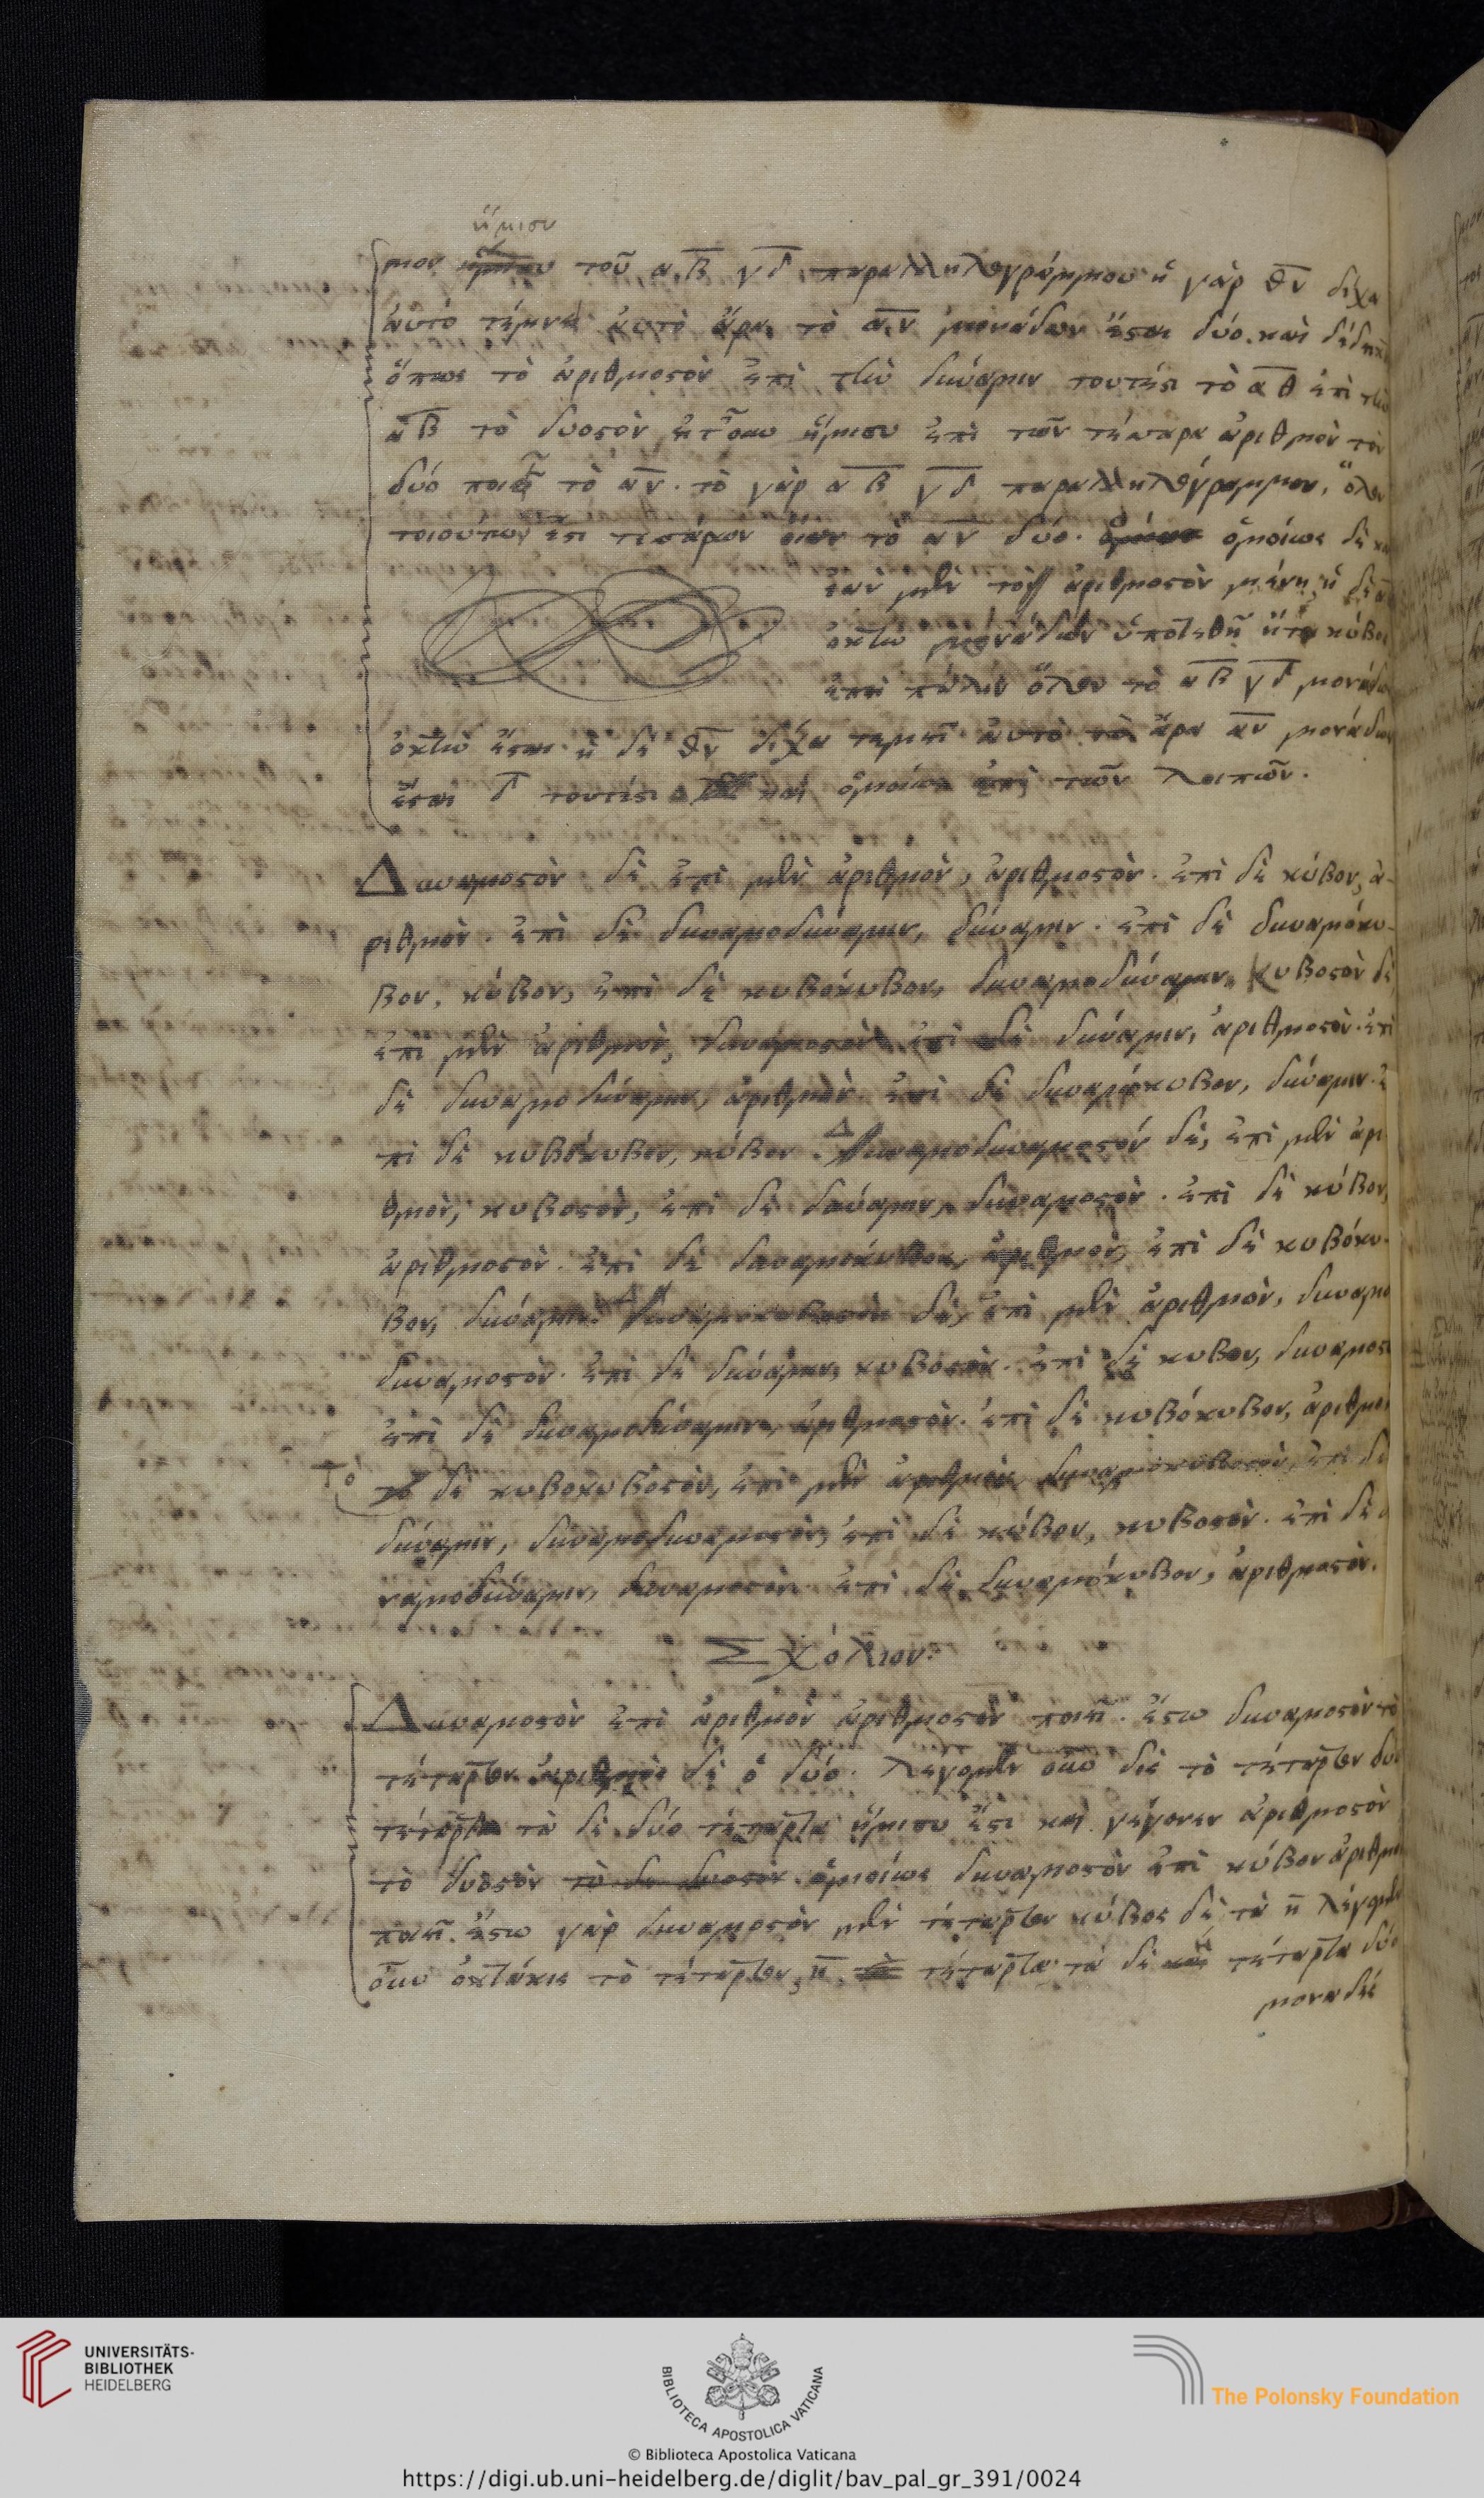 ἥμισυ
μιον τοῦ α β γδ παραλληλογράμμου ἡ γὰρ θν δίχα
αὐτό τέμνει αὐτὸ ἄρα τὸ αν μονάδων ἔσται δύο. καὶ
ὅπως τὸ ἀριθμοστὸν ἐπὶ τὴν δύναμιν τουτέστι τὸ αθ ἐπὶ τὴν
αβ τὸ δυοστὸν ἥμισυ ἐπὶ τῶν τέσσαρα ἀριθμὸν τὸν
δύο ποιεῖ τὸ αν. τὸ γὰρ αβ γδ παραλληλόγραμμον, ὅλον
τεσσάρων τὸ αν δύο. ὁμοίως δὲ
ἐὰν μὲν τὸ ἀριθμοστὸν μένη, ἡ δὲ
ὀκτὼ μονάδων ὑποτεθῆ ἤτοι κύβος
ἐπεὶ πάλιν ὅλον τὸ αβ γδ μονάδων
ὀκτὼ ἔσται ἡ δὲ θν δίχα τεμεῖ αὐτὸ τὸ ἄρα αν μονάδων
ἔσται δ τουτέστι καὶ ὁμοίως ἐπὶ τῶν λοιπῶν.
Δυναμοστὸν δὲ ἐπὶ μὲν ἀριθμὸν, ἀριθμοστὸν. ἐπὶ δὲ κύβον, ἀ-
ριθμὸν. ἐπὶ δὲ δυναμοδύναμιν, δύναμιν. ἐπὶ δὲ δυναμόκυ-
βον, κύβον, ἐπὶ δὲ κυβόκυβον, δυναμοδύναμιν. κυβοστὸν δὲ
ἐπὶ μὲν ἀριθμὸν, δυναμοστὸν ἐπὶ δὲ δύναμιν, ἀριθμοστὸν. ἐπὶ
δὲ δυναμοδύναμιν, ἀριθμὸν. ἐπὶ δὲ δυναμόκυβον, δύναμιν. ἐ
πὶ δὲ κυβόκυβον, κύβον. Δυναμοδυναμοστὸν δὲ, ἐπὶ μὲν ἀρι
θμὸν, κυβοστὸν, ἐπὶ δὲ δύναμιν, δυναμοστὸν. ἐπὶ δὲ κύβον,
ἀριθμοστὸν. ἐπὶ δὲ δυναμόκυβον, ἀριθμὸν, ἐπὶ δὲ κυβόκυ-
βον, δύναμιν. Δυναμοκυβοστὸν δὲ, ἐπὶ μὲν ἀριθμὸν, δυναμο
δυναμοστὸν. ἐπὶ δὲ δύναμιν, κυβοστὸν. ἐπὶ δὲ κύβον, δυναμοστ
ἐπὶ δὲ δυναμοδύναμιν, ἀριθμοστὸν. ἐπὶ δὲ κυβόκυβον, ἀριθμὸ
τὸ δὲ κυβοκυβοστὸν, ἐπὶ μὲν ἀριθμὸν, δυναμοκυβοστὸν, ἐπὶ δὲ
δύναμιν, δυναμοδυναμοστὸν, ἐπὶ δὲ κύβον, κυβοστὸν. ἐπὶ δὲ δ
ναμοδύναμιν, δυναμοστὸν. ἐπὶ δὲ δυναμόκυβον, ἀριθμοστὸν.
Σχόλιον.
Δυναμοστὸν ἐπὶ ἀριθμὸν ἀριθμοστὸν ποιεῖ. ἔστω δυναμοστὸν τὸ
τέταρτον ἀριθμὸς δὲ ὁ δύο. λέγομεν οὖν δὶς τὸ τέταρτον δύο
τέταρτα τὰ δὲ δύο τέταρτα ἥμισυ ἔστι καὶ γέγονεν ἀριθμοστὸν
τὸ δυοστὸν ὁμοίως δυναμοστὸν ἐπὶ κύβον ἀριθμὸ
ποιεῖ. ἔστω γὰρ δυναμοστὸν μὲν τέταρτον κύβος δὲ τὰ η λέγομεν
οὖν ὀκτάκις τὸ τέταρτον, η τέταρτα τὰ δὲ τέταρτα δύο
μοναδές
UNIVERSITÄTS-
BIBLIOTHEK
HEIDELBERG
BIBLIOTECA APOSTOLICA VATICANA
The Polonsky Foundation
© Biblioteca Apostolica Vaticana
https://digi.ub.uni-heidelberg.de/diglit/bav_pal_gr_391/0024